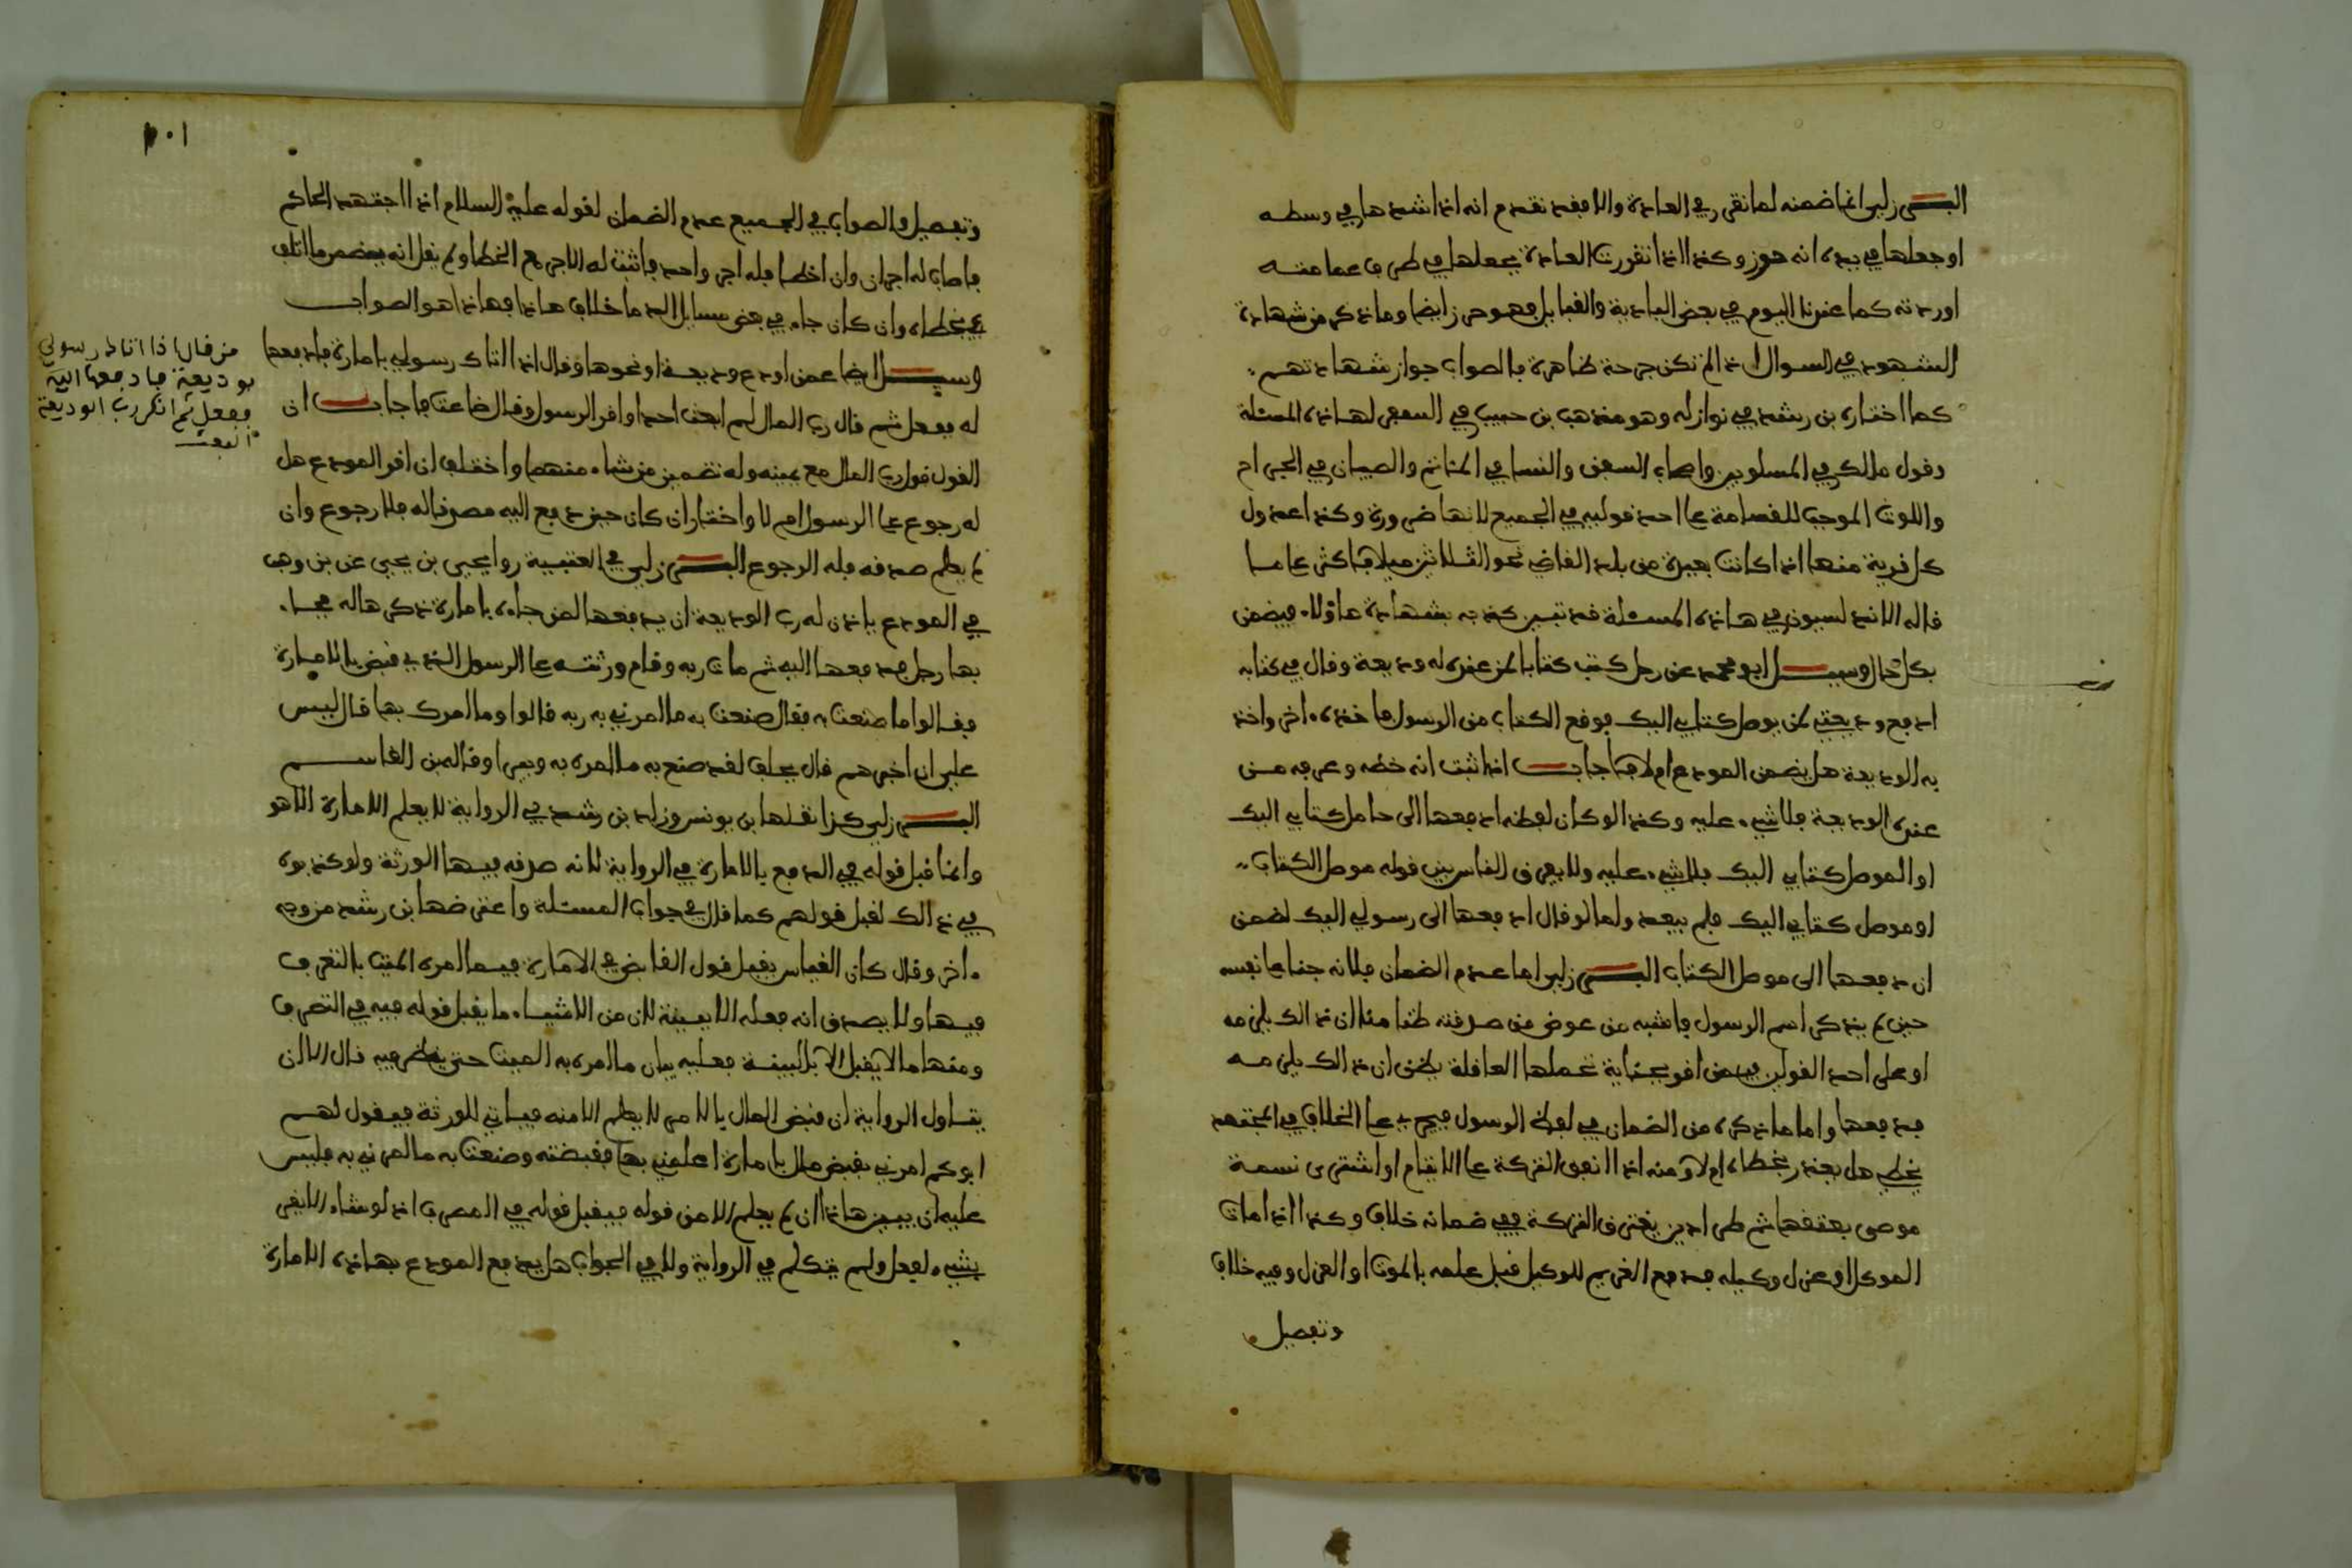 البـــرزلي انما ضمنه لما تقرر في العادة والا فقد تقدم انه اذا شدها في وسطه
او جعلها في يده انه حوز وكذا اذا تقررت العادة بجعلها في طرف عمامته
او ردته كما عندنا اليوم في بعض البادية والقبايل فهو حرز ايضا وما ذكر من شهادة
الشهود في السوال اذ الم تكن جرحة ظاهرة فالصواب جواز شهادتهم
كما اختاره بن رشد في نوازله وهو مذهب بن حبيب في السفر لهاذه المسئلة
وقول مالك في المسلوبين واصحاب السفن والنسا في الماتم والصبيان في الجراح
واللوث الموجب للقسامة على احد قوليه في الجميع لانها ضرورة وكذا عدول
كل قرية منها اذا كانت بعيدة من بلد القاضي نحو الثلاثين ميلا فاكثر على ما
قاله الاندلسيون في هاذه المسئلة فقد تبين كذبه بشهادة هاؤلاء فيضمن
بكل حال وسيـــل ابو محمد عن رجل كتب كتابا لمن عنده له وديعة وقال في كتابه
ادفع وديعتي لمن يوصل كتابي اليك فوقع الكتاب من الرسول فاخذه ءاخر واخذ
به الوديعة هل يضمن المودع ام لا فاجاب اذا ثبت انه خطه وعرفه من
عنده الوديعة فلا شيء عليه وكذا لو كان لفظه ادفعها الى حامل كتابي اليك
او الموصل كتابي اليك فلا شيء عليه ولا يعرف الفاس بين قوله موصل الكتاب
او موصل كتابي اليك فلم يبعد واما لو قال ادفعها الى رسولي اليك لضمن
ان دفعها الى موصل الكتاب البـــرزلي اما عدم الضمان فلانه جنا على نفسه
حين لم يذكر اسم الرسول فاشبه من عوض من صدقته ظنا منه ان ذالك يلزمه
او على احد القولين فيمن اقر بجناية تحملها العاقلة يظن ان ذالك يلزمه
فدفعها واما ما ذكره من الضمان في لفظ الرسول فيجري على الخلاف في المجتهد
يخطي هل يعذر بخطاه ام لا ومنه اذا انفق التركة على الايتام او اشترى نسمة
موصى بعتقها ثم طرا دين يغترق التركة ففي ضمانه خلاف وكذا اذا مات
الموكل او عزل وكيله فدفع الغريم للوكيل قبل علمه بالموت او العزل وفيه خلاف
وتفصيل
١٠١
وتفصيل والصواب في الجميع عدم الضمان لقوله عليه السلام اذا اجتهد الحاكم
فاصاب له اجران وان اخطا فله اجر واحد فاثبت له الاجر مع الخطا ولم يقل انه يضمن ما اتلف
في خطاه وان كان جاء في بعض مسايل الدما خلاف هاذا فهاذا هو الصواب
وسيـــل ايضا عمن اودع وديعة او نحوها وقال اذا اتاك رسولي بامارة فادفعها
له ففعل ثم قال رب المال لم ابعث احدا واقر الرسول وقال ضاعت فاجاب ان
القول قول رب المال مع يمينه وله تضمين من شاء منهما واختلف ان اقر المودع هل
له رجوع على الرسول ام لا واختار ان كان حين دفع اليه مصدقا له فلا رجوع وان
لم يعلم صدقه فله الرجوع البـــرزلي في العتبية روا يحيى بن يحيى عن بن وهب
في المودع ياذن له رب الوديعة ان يدفعها لمن جاءه بامارة ذكرها له فجاء
بها رجل فدفعها اليه ثم مات ربه وقام ورثته على الرسول الذي قبض بالامارة
فقالوا ما صنعت به فقال صنعت به ما امرني به ربه قالوا وما امرك بها قال ليس
علي ان اخبرهم قال يحلف لقد صنع به ما امره به ويبرا وقاله بن القاسم
البـــرزلي كذا نقلها بن يونس وزاد بن رشد في الرواية لا يعلم الامارة الا هو
وانما قبل قوله في الدفع بالامارة في الرواية لانه صدقه فيها الورثة ولو كذبوه
في ذالك لقبل قولهم كما قال في جواب المسئلة واعترضها بن رشد من وجه
ءاخر وقال كان القياس يقبل قول القابض في الامارة فيما امره الميت بالتصرف
فيها ولا يصدق انه فعله الا ببينة لان من الاشياء ما يقبل قوله فيه في التصرف
ومنها ما لا يقبل الا بالبينة فعليه بيان ما امره به الميت حتى ينظر فيه قال الا ان
يتاول الرواية ان قبض المال بالامر لا يعلم الا منه فياتي للورثة فيقول لهم
ابوكم امرني بقبض مال بامارة اعلمني بها فقبضته وصنعت به ما امرني به فليس
عليه ان يبين هاذا ان لم يعلم الا من قوله فيقبل قوله في المصرف اذ لو شاء الا يقر
بشيء لفعل ولم يتكلم في الرواية ولا في الجواب هل يدفع المودع بهاذه الامارة
من قال اذا اتاك رسولي
بوديعة فادفعها اليه
ففعل ثم انكر رب الوديعة
البعث